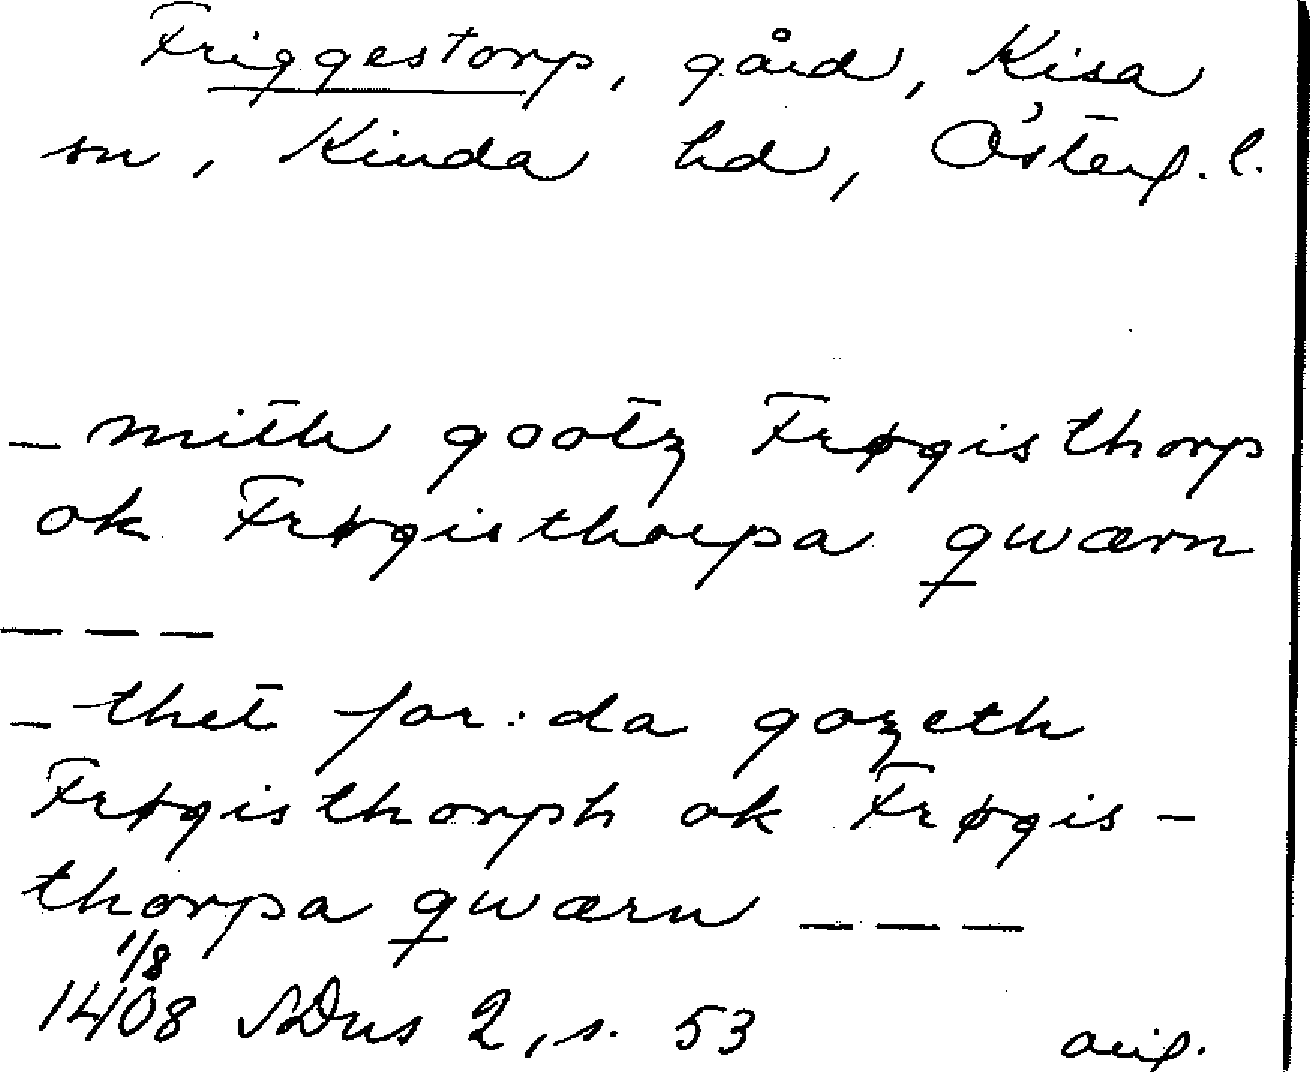 Friggestorp, gård, Kisa
sn, Kinda hd, Österg. l.
– mith gootz Frøgisthorp
ok Frøgisthorpa qwærn
– – –
– thet for:da gozeth
Frøgisthorph ok Frøgis-
thorpa qwærn – – –
1/8
1408 SDns 2, s. 53 orig.